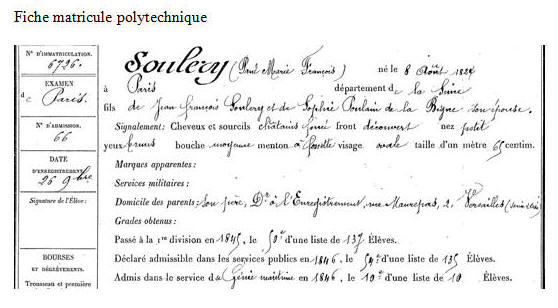 Fiche matricule polytechnique
N° D'IMMATRICULATION.
6726.
EXAMEN
de Paris.
N° D'ADMISSION.
66
DATE
D'ENREGISTREMENT
26 9bre
Signature de l'Élève:
BOURSES
ET DÉGRÈVEMENTS.
Trousseau et première
Soulery (Paul Marie François) né le 8 Août 1824
à Paris département de la Seine
fils de Jean François Soulery et de Sophie Poulain de la Bigne son épouse.
Signalement: Cheveux et sourcils châtains foncé front découvert nez petit
yeux bruns bouche moyenne menton à fossette visage ovale taille d'un mètre 65 centim.
Marques apparentes:
Services militaires:
Domicile des parents: son père, Dr à l'Enregistrement, rue Maurepas, 2, Versailles
Grades obtenus:
Passé à la 1re division en 1845, le 50e d'une liste de 137 Élèves.
Déclaré admissible dans les services publics en 1846, le 54e d'une liste de 135 Élèves.
Admis dans le service du Génie maritime en 1846, le 10e d'une liste de 10 Élèves.